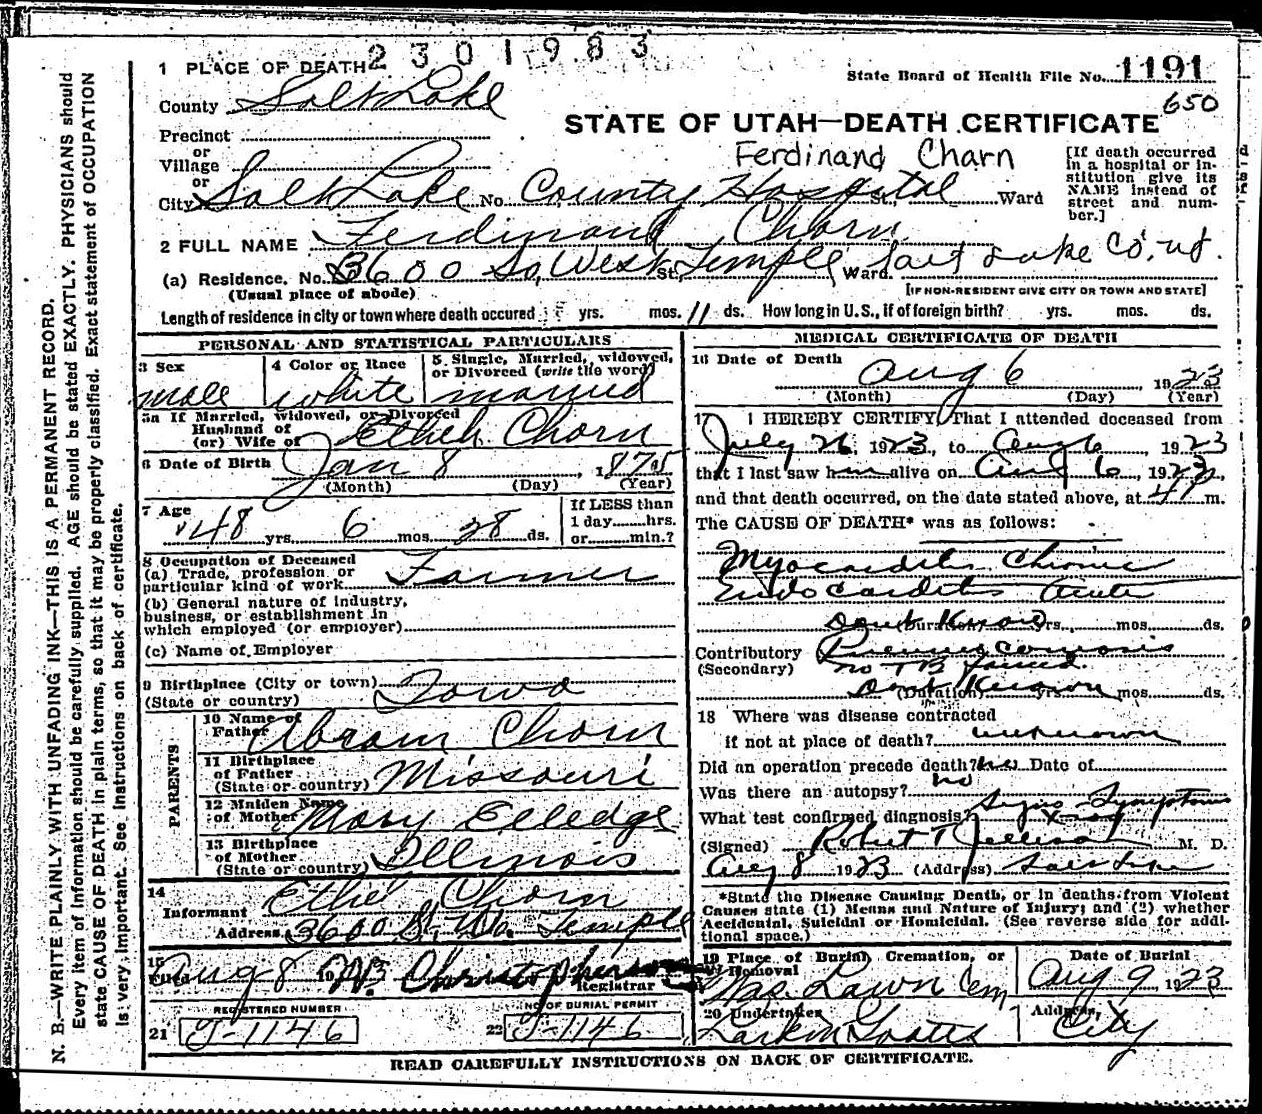 2301983
1 PLACE OF DEATH
State Board of Health File No. 1191
County Salt Lake
650
STATE OF UTAH—DEATH CERTIFICATE
Precinct
or
Village
Ferdinand Charn
[If death occurred in a hospital or institution give its NAME instead of street and number.]
or
City Salt Lake No. County Hospital St., Ward
2 FULL NAME Ferdinand Chorn
(a) Residence. No. 3600 So. West Temple St. Ward Salt Lake Co. Ut.
(Usual place of abode) [IF NON-RESIDENT GIVE CITY OR TOWN AND STATE]
Length of residence in city or town where death occured yrs. mos. 11 ds. How long in U.S., if of foreign birth? yrs. mos. ds.
PERSONAL AND STATISTICAL PARTICULARS
3 Sex
male
4 Color or Race
white
5 Single, Married, widowed, or Divorced (write the word)
married
5a If Married, widowed, or Divorced
Husband of
(or) Wife of Ethel Chorn
6 Date of Birth Jan 8, 1875
(Month) (Day) (Year)
7 Age
48 yrs. 6 mos. 28 ds.
If LESS than
1 day hrs.
or min.?
8 Occupation of Deceased
(a) Trade, profession or
particular kind of work Farmer
(b) General nature of industry,
business, or establishment in
which employed (or employer)
(c) Name of Employer
9 Birthplace (City or town)
(State or country) Iowa
PARENTS
10 Name of
Father Abram Chorn
11 Birthplace
of Father
(State or country) Missouri
12 Maiden Name
of Mother Mary Elledge
13 Birthplace
of Mother
(State or country) Illinois
14
Informant Ethel Chorn
Address 3600 So. Wo. Temple
15
Filed Aug 8 19 W. Christopherson
Registrar
REGISTERED NUMBER
21 J-1146
NO OF BURIAL PERMIT
22 J-1146
MEDICAL CERTIFICATE OF DEATH
16 Date of Death
Aug 6 1923
(Month) (Day) (Year)
17 I HEREBY CERTIFY, That I attended deceased from
July 26, 1923, to Aug 6, 1923
that I last saw him alive on Aug 6, 1923,
and that death occurred, on the date stated above, at 4 P m.
The CAUSE OF DEATH* was as follows:
Myocarditis Chronic
Endocarditis Acute
Don't Know (Duration) yrs. mos. ds.
Contributory Pneumoconiosis
(Secondary) no TB found.
Don't Known (Duration) yrs. mos. ds.
18 Where was disease contracted
if not at place of death? unknown
Did an operation precede death? no Date of
Was there an autopsy? no
What test confirmed diagnosis? Signs Symptoms
Xray
(Signed) Robert T Jellison M. D.
Aug 8 1923 (Address) Salt Lake
*State the Disease Causing Death, or in deaths from Violent
Causes state (1) Means and Nature of Injury; and (2) whether
Accidental, Suicidal or Homicidal. (See reverse side for additional space.)
19 Place of Burial, Cremation, or
Removal
Was. Lawn Cem
Date of Burial
Aug 9 1923
20 Undertaker
Larkin
Address,
City
READ CAREFULLY INSTRUCTIONS ON BACK OF CERTIFICATE.
N. B.—WRITE PLAINLY WITH UNFADING INK—THIS IS A PERMANENT RECORD.
Every item of information should be carefully supplied. AGE should be stated EXACTLY. PHYSICIANS should
state CAUSE OF DEATH in plain terms, so that it may be properly classified. Exact statement of OCCUPATION
is very important. See instructions on back of certificate.